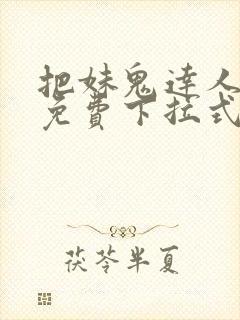 把妹鬼達人
免費下拉式
茯苓半夏